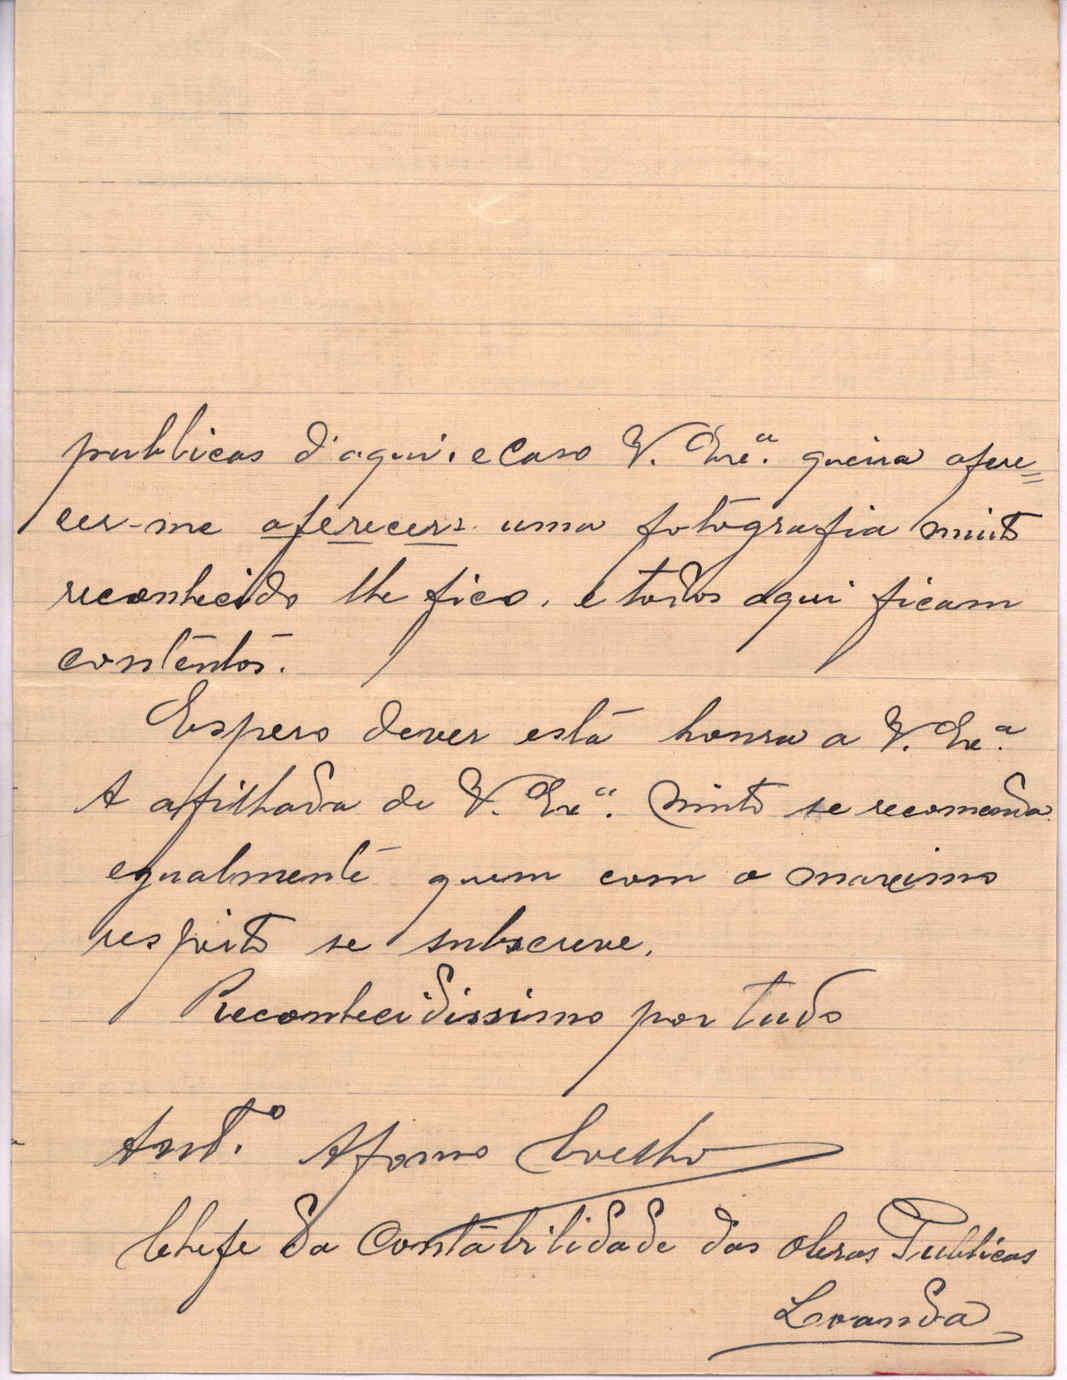 publicas d'aqui. e caso V. Exe.ª queira ofere=
cer-me oferecer uma fotografia muito
reconhecido lhe fico. e todos aqui ficam
contentos.
Espero dever está honra a V. Exe.ª
A afilhada de V. Exe.ª Muito se recomenda
egualmente quem com o maximo
respeito se subscreve.
Reconhecidissimo por tudo
Ant.º Afonso Coelho
Chefe da Contabilidade das Obras Publicas
Loanda